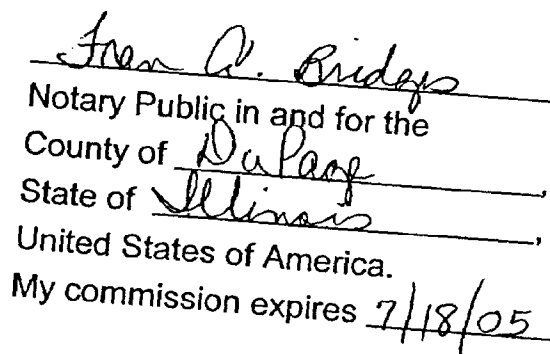 Fran A. Bridges
Notary Public in and for the
County of DuPage,
State of Illinois,
United States of America.
My commission expires 7/18/05